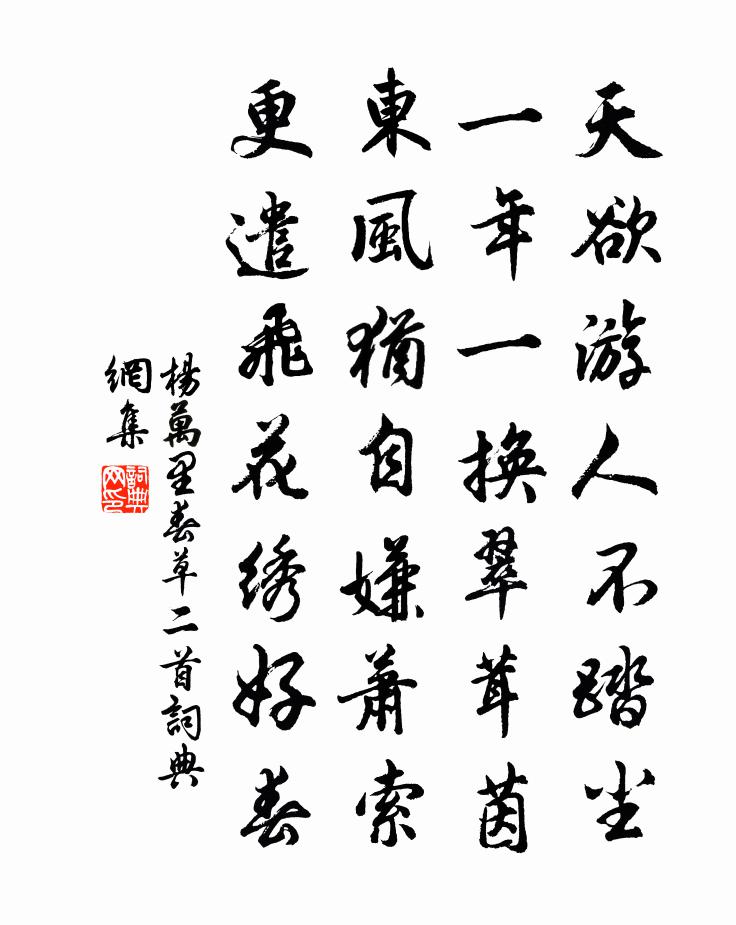 天欲游人不踏尘
一年一换翠茸茵
東風猶自嫌蕭索
更遣飛花绣好春
楊萬里春草二首詞典
網集
詞典
网印